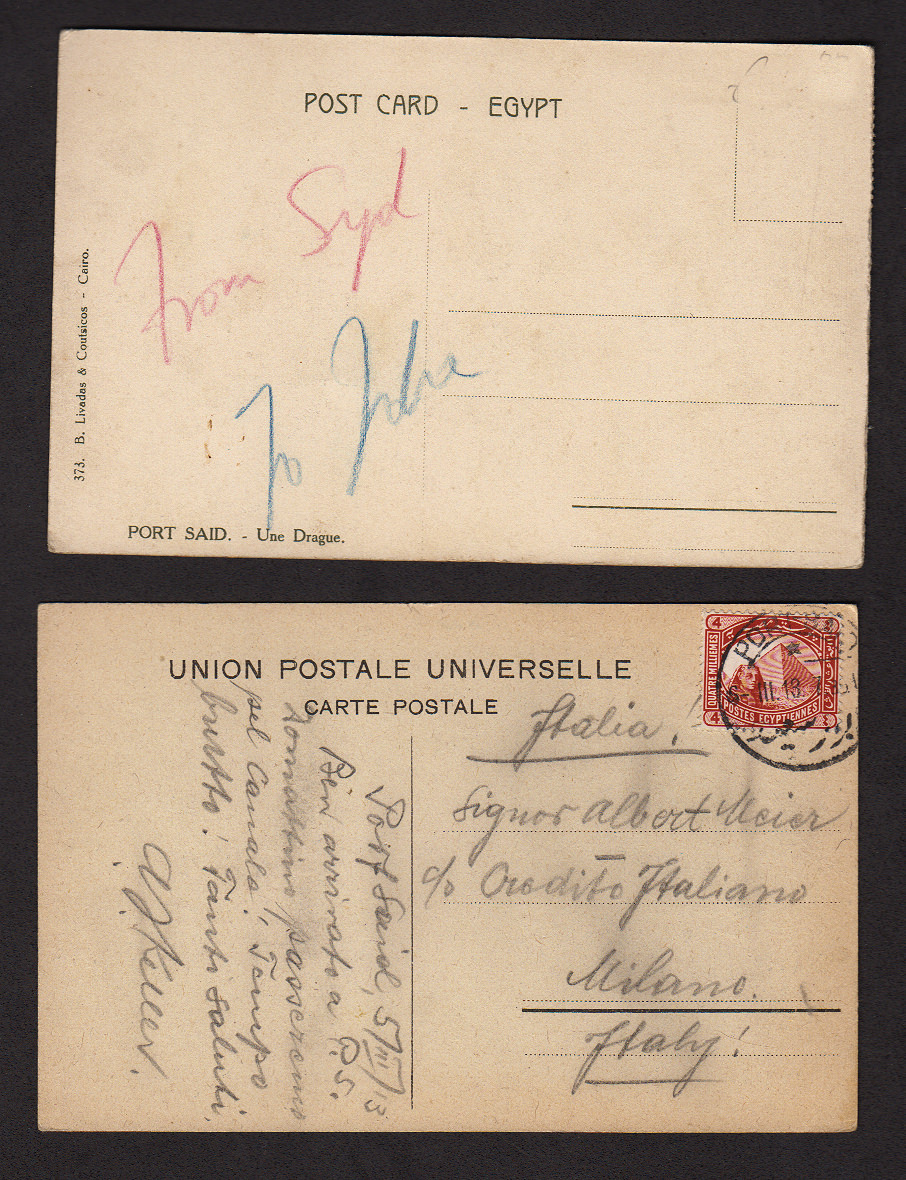 POST CARD - EGYPT
From Syd
To
373. B. Livadas & Coutsicos - Cairo.
PORT SAID. - Une Drague.
UNION POSTALE UNIVERSELLE
CARTE POSTALE
4 4
QUATRE MILLIEMES
POSTES EGYPTIENNES
4
PORT SAID
III.13.
Italia!
Signor Albert Meier
c/o Credito Italiano
Milano.
Italy!
Port Said, 5/III/13
Ben arrivato a P.S.
Domattino passeremo
pel Canale! Tempo
brutto! Tanti saluti.
Keller.